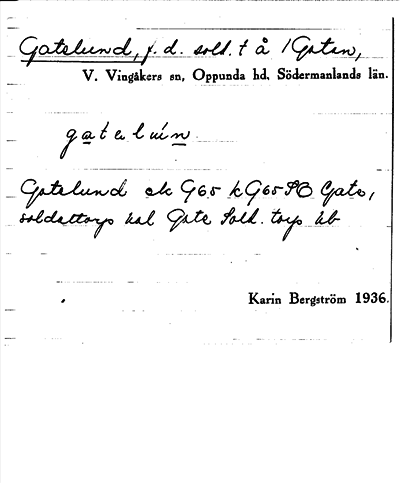 Gatelund, f. d. sold. t å /Gatan,
V. Vingåkers sn, Oppunda hd, Södermanlands län.
gatelun
Gatelund ek G65 kG65SO Gate,
soldattorp kal Gate Sold. torp äb
Karin Bergström 1936.